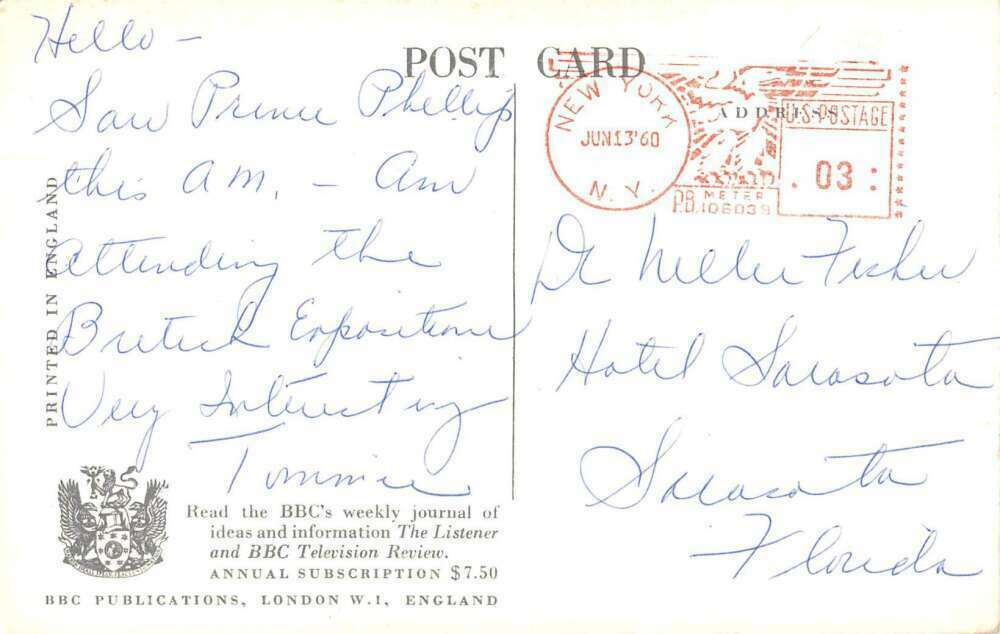 Hello -
Saw Prince Phellip
this A.M. - Am
attending the
British Exposition
Very Interesting
Tommie
POST CARD
ADDRESS
NEW YORK
JUN 13 '60
N. Y.
U.S. POSTAGE
03
P.B. METER
106039
Dr Nellie Fisher
Hotel Sarasota
Sarasota
Florida
PRINTED IN ENGLAND
Read the BBC's weekly journal of
ideas and information The Listener
and BBC Television Review.
ANNUAL SUBSCRIPTION $7.50
BBC PUBLICATIONS, LONDON W.1, ENGLAND